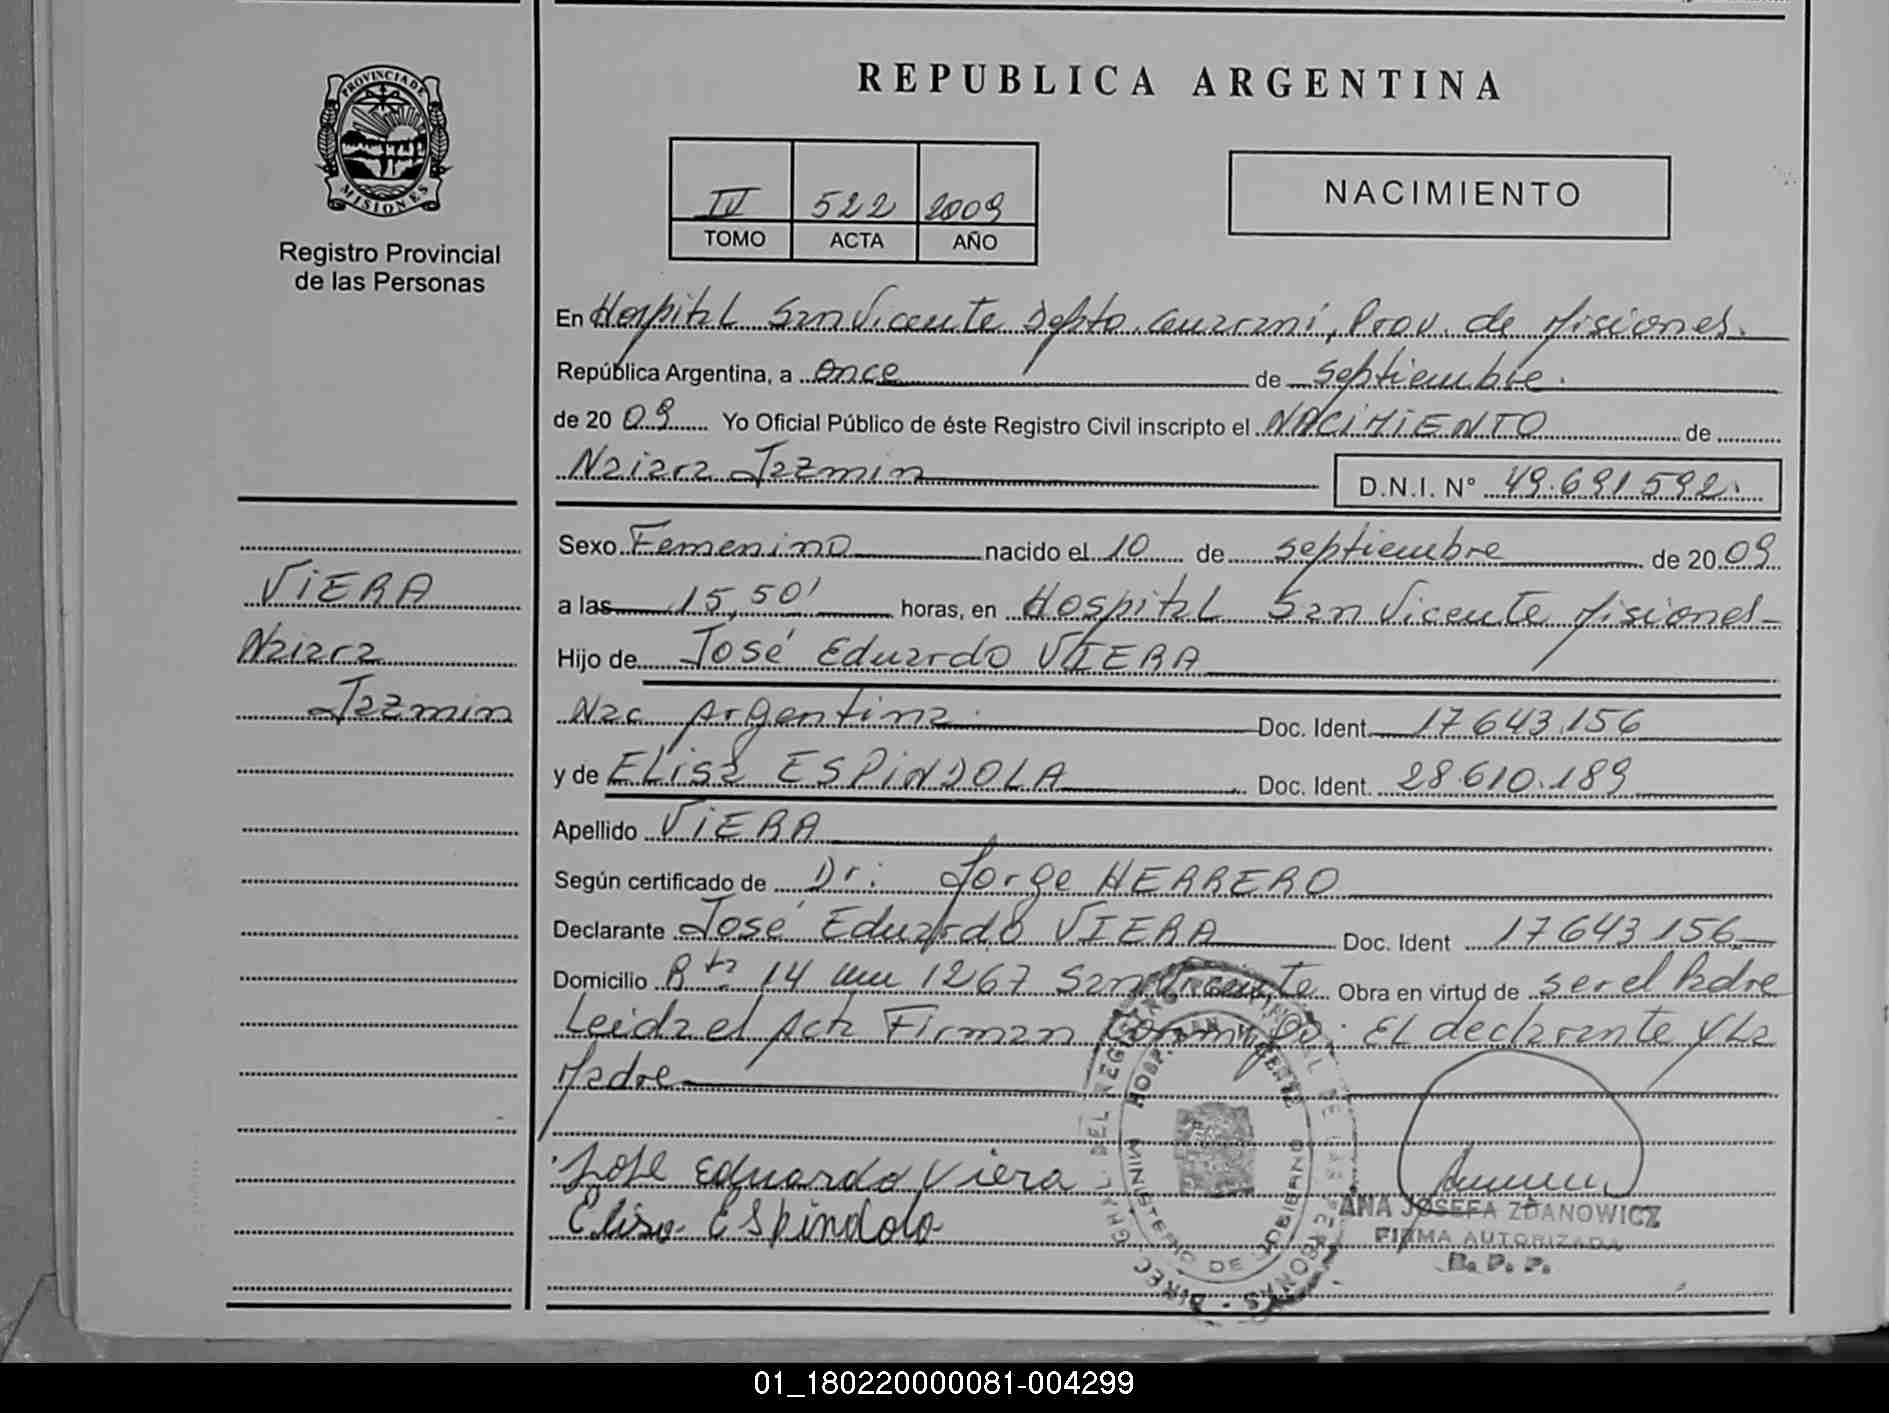 REPUBLICA ARGENTINA
PROVINCIA DE
MISIONES
Registro Provincial
de las Personas
IV 522 2009
TOMO ACTA AÑO
NACIMIENTO
En Hospital San Vicente Depto. Guarani, Prov. de Misiones.
República Argentina, a once de septiembre.
de 20 09 Yo Oficial Público de éste Registro Civil inscripto el NACIMIENTO de
Naiara Jazmin D.N.I. N° 49.691592.
Sexo Femenino nacido el 10 de septiembre de 20 09
VIERA
a las 15,50' horas, en Hospital San Vicente Misiones
Naiara
Hijo de José Eduardo VIERA
Jazmin
Nac Argentina. Doc. Ident. 17643.156
y de Elisa ESPINDOLA Doc. Ident. 28.610.189
Apellido VIERA
Según certificado de Dr: Jorge HERRERO
Declarante José Eduardo VIERA Doc. Ident 17643156
Domicilio Rta 14 km 1267 San Vicente Obra en virtud de ser el Padre
Leida el Acta Firman Conmigo: El declarante y La
Madre
José Eduardo Viera
Elisa Espindola
DIREC. GRAL. DEL REGISTRO PROVINCIAL DE LAS PERSONAS
HOSP. SAN VICENTE
MINISTERIO DE GOBIERNO
ANA JOSEFA ZDANOWICZ
FIRMA AUTORIZADA
R. P. P.
01_180220000081-004299